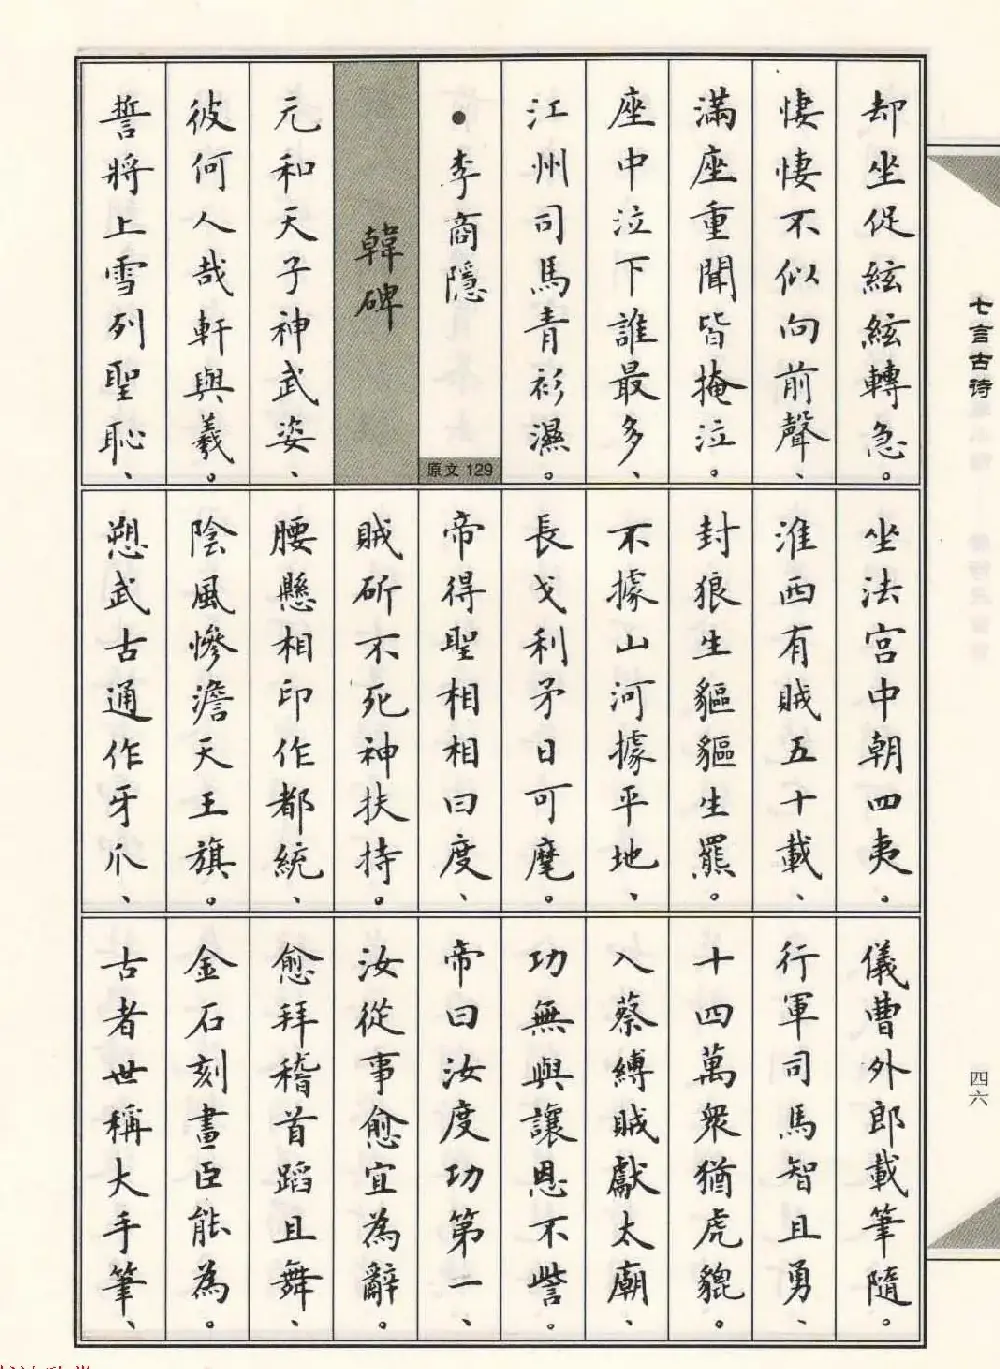 七言古诗
却坐促絃絃轉急。
悽悽不似向前聲、
滿座重聞皆掩泣。
座中泣下誰最多、
江州司馬青衫濕。
•李商隱
原文 129
韓碑
元和天子神武姿、
彼何人哉軒與羲。
誓將上雪列聖恥、
坐法宮中朝四夷。
淮西有賊五十載、
封狼生貙貙生羆。
不據山河據平地、
長戈利矛日可麾。
帝得聖相相曰度、
賊斫不死神扶持。
腰懸相印作都統、
陰風慘澹天王旗。
愬武古通作牙爪、
儀曹外郎載筆隨。
行軍司馬智且勇、
十四萬衆猶虎貔。
入蔡縛賊獻太廟、
功無與讓恩不訾。
帝曰汝度功第一、
汝從事愈宜為辭。
愈拜稽首蹈且舞、
金石刻畫臣能為。
古者世稱大手筆、
四六